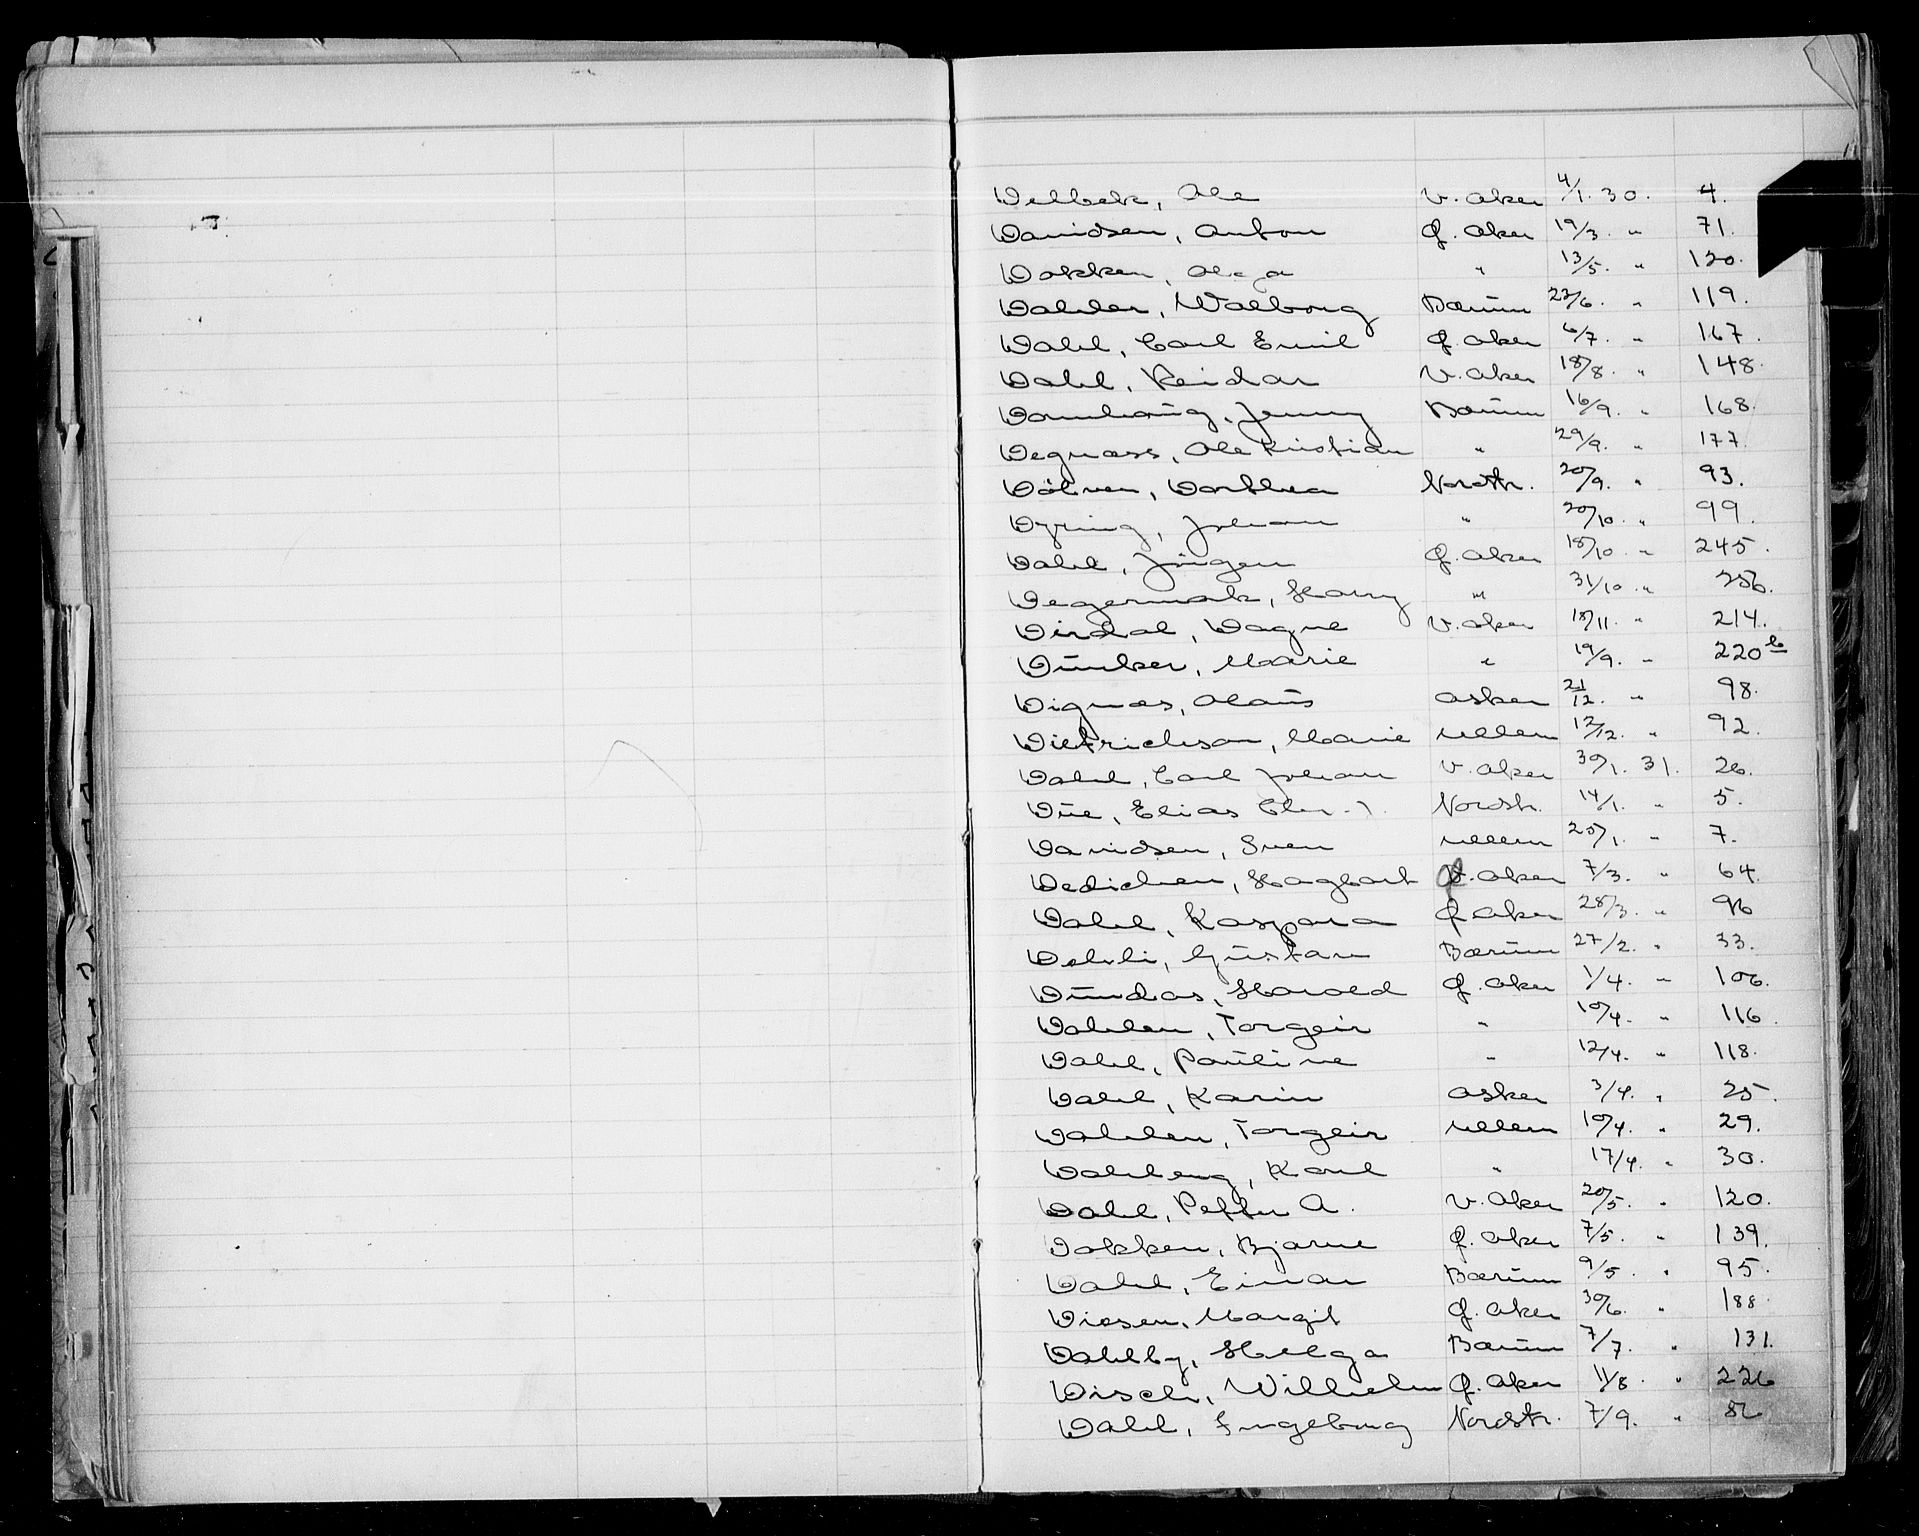 Delbek, Ole V. Aker 4/1. 30. 4.
Davidsen, Anton Ø. Aker 19/3. " 71.
Dokken, Olga " 13/5. " 120.
Dahler, Valborg Bærum 23/6. " 119.
Dahl, Carl Emil Ø. Aker 6/7. " 167.
Dahl, Reidar V. Aker 18/8. " 148.
Jenny Bærum 16/9. " 168.
Degnæss, Ole Kristian " 29/9. " 177.
Dølven, Dorthea Nordstr. 20/9. " 93.
Dyring, Johan " 20/10. " 99.
Dahl, Jørgen Ø. Aker 18/10 " 245.
Degermark, Harry " 31/10 " 256.
Dirdal, Dagne V. Aker 18/11. " 214.
Dunker, Marie " 19/9. " 220 b
Dignæs, Olaus Asker 21/12. " 98.
Dietrichson, Marie Ullern 12/12. " 92.
Dahl, Carl Johan V. Aker 30/1. 31. 26.
Due, Elias Chr. J. Nordstr. 14/1. " 5.
Davidsen, Sven Ullern 20/1. " 7.
Dedichen, Hagbart Ø. Aker 7/3. " 64.
Dahl, Kaspara Ø. Aker 28/3. " 96
Dehli, Gustav Bærum 27/2. " 33.
Dundas, Harald Ø. Aker 1/4. " 106.
Dahlen, Torgeir " 10/4. " 116.
Dahl, Pauline " 12/4. " 118.
Dahl, Karin Asker 3/4. " 25.
Dahlen, Torgeir Ullern 10/4. " 29.
Dahlberg, Karl " 17/4. " 30.
Dahl, Petter A. V. Aker 20/5. " 120.
Dokken, Bjarne Ø. Aker 7/5. " 139.
Dahl, Einar Bærum 9/5. " 95.
Diesen, Margit Ø. Aker 30/6. " 188.
Dahlby, Helga Bærum 7/7. " 131.
Disch, Wilhelm Ø. Aker 11/8. " 226
Dahl, Ingeborg Nordstr. 7/9. " 82